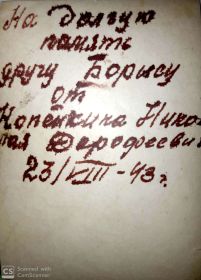 На Долгую
память
другу Борису
от
Копейкина Нико
лая Дорофеевич
23/VIII-43 г.
CS Scanned with
CamScanner